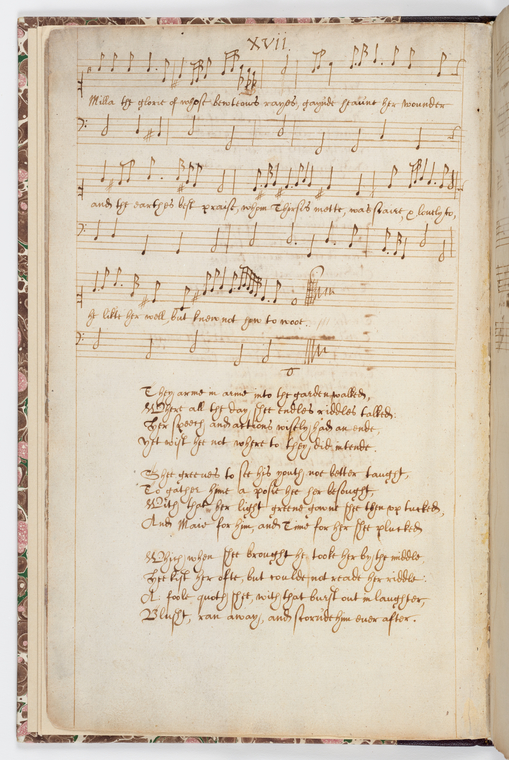 xvii.
Milla the glorie of whose bewteous rayes, gaynde heauns her wounder
and the earthes best praise, whom Thirsis mette, was faire & lovely to,
he likte her well, but knew not how to wooe.
They arme in arme into the garden walked,
Where all the day, shee endles riddles talked,
Her speech and actions wisely had an ende,
Yet wist he not where to they did intende.
Shee greeues to see his youth noe better taught,
To gather hime a posie hee her besought,
With that her light greene gowne shee then upp tucked,
And Maie for him, and Time for her shee plucked
Which when shee brought he tooke her by the middle,
Hee kist her ofte, but coulde not reade her riddle.
A foole quoth shee, with that burst out in laughter,
Blusht, ran away, and scornde him euer after.